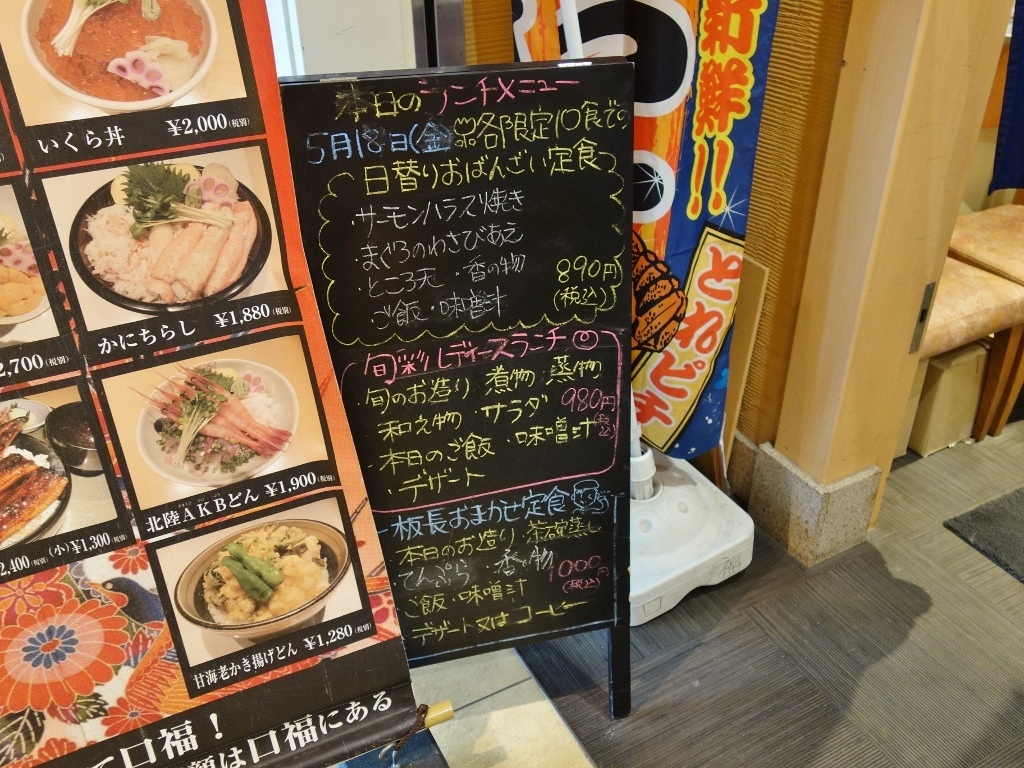 いくら丼 ¥2,000(税別)
かにちらし ¥1,880(税別)
2,700(税別)
北陸AKBどん ¥1,900(税別)
2,400(税別) (小)¥1,300(税別)
甘海老かき揚げどん ¥1,280(税別)
口福!
は口福にある
本日のランチメニュー
5月18日(金)品各限定10食での
日替りおばんざい定食
・サーモンハラス焼き
・まぐろのわさびあえ
・ところ天 ・香の物
ご飯・味噌汁
890円
(税込)
旬彩レディースランチ
・旬のお造り 煮物 蒸物
和え物 ・サラダ
980円
(税込)
・本日のご飯 ・味噌汁
・デザート
板長おまかせ定食
本日のお造り 茶碗蒸し
てんぷら 香の物
1000円
(税込)
ご飯・味噌汁
デザート又はコーヒー
新鮮!!
とれピチ
福